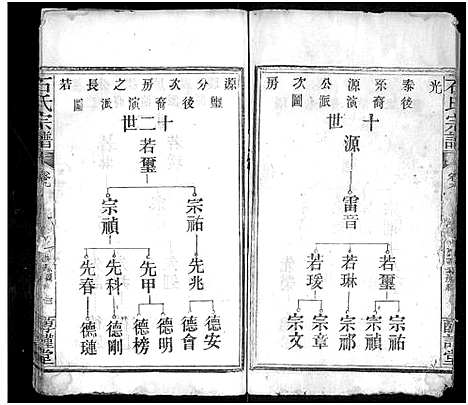 石氏宗譜
光泰公次房
後裔演派圖
十世
源
雷音
若璽
若琳
若瑗
宗祐
宗禎
宗祁
宗章
宗文
源分次房之長若
璽後裔演派圖
十二世
若璽
宗祐
宗禎
先兆
先甲
先科
先春
德安
德會
德明
德榜
德剛
德璉
石氏宗譜